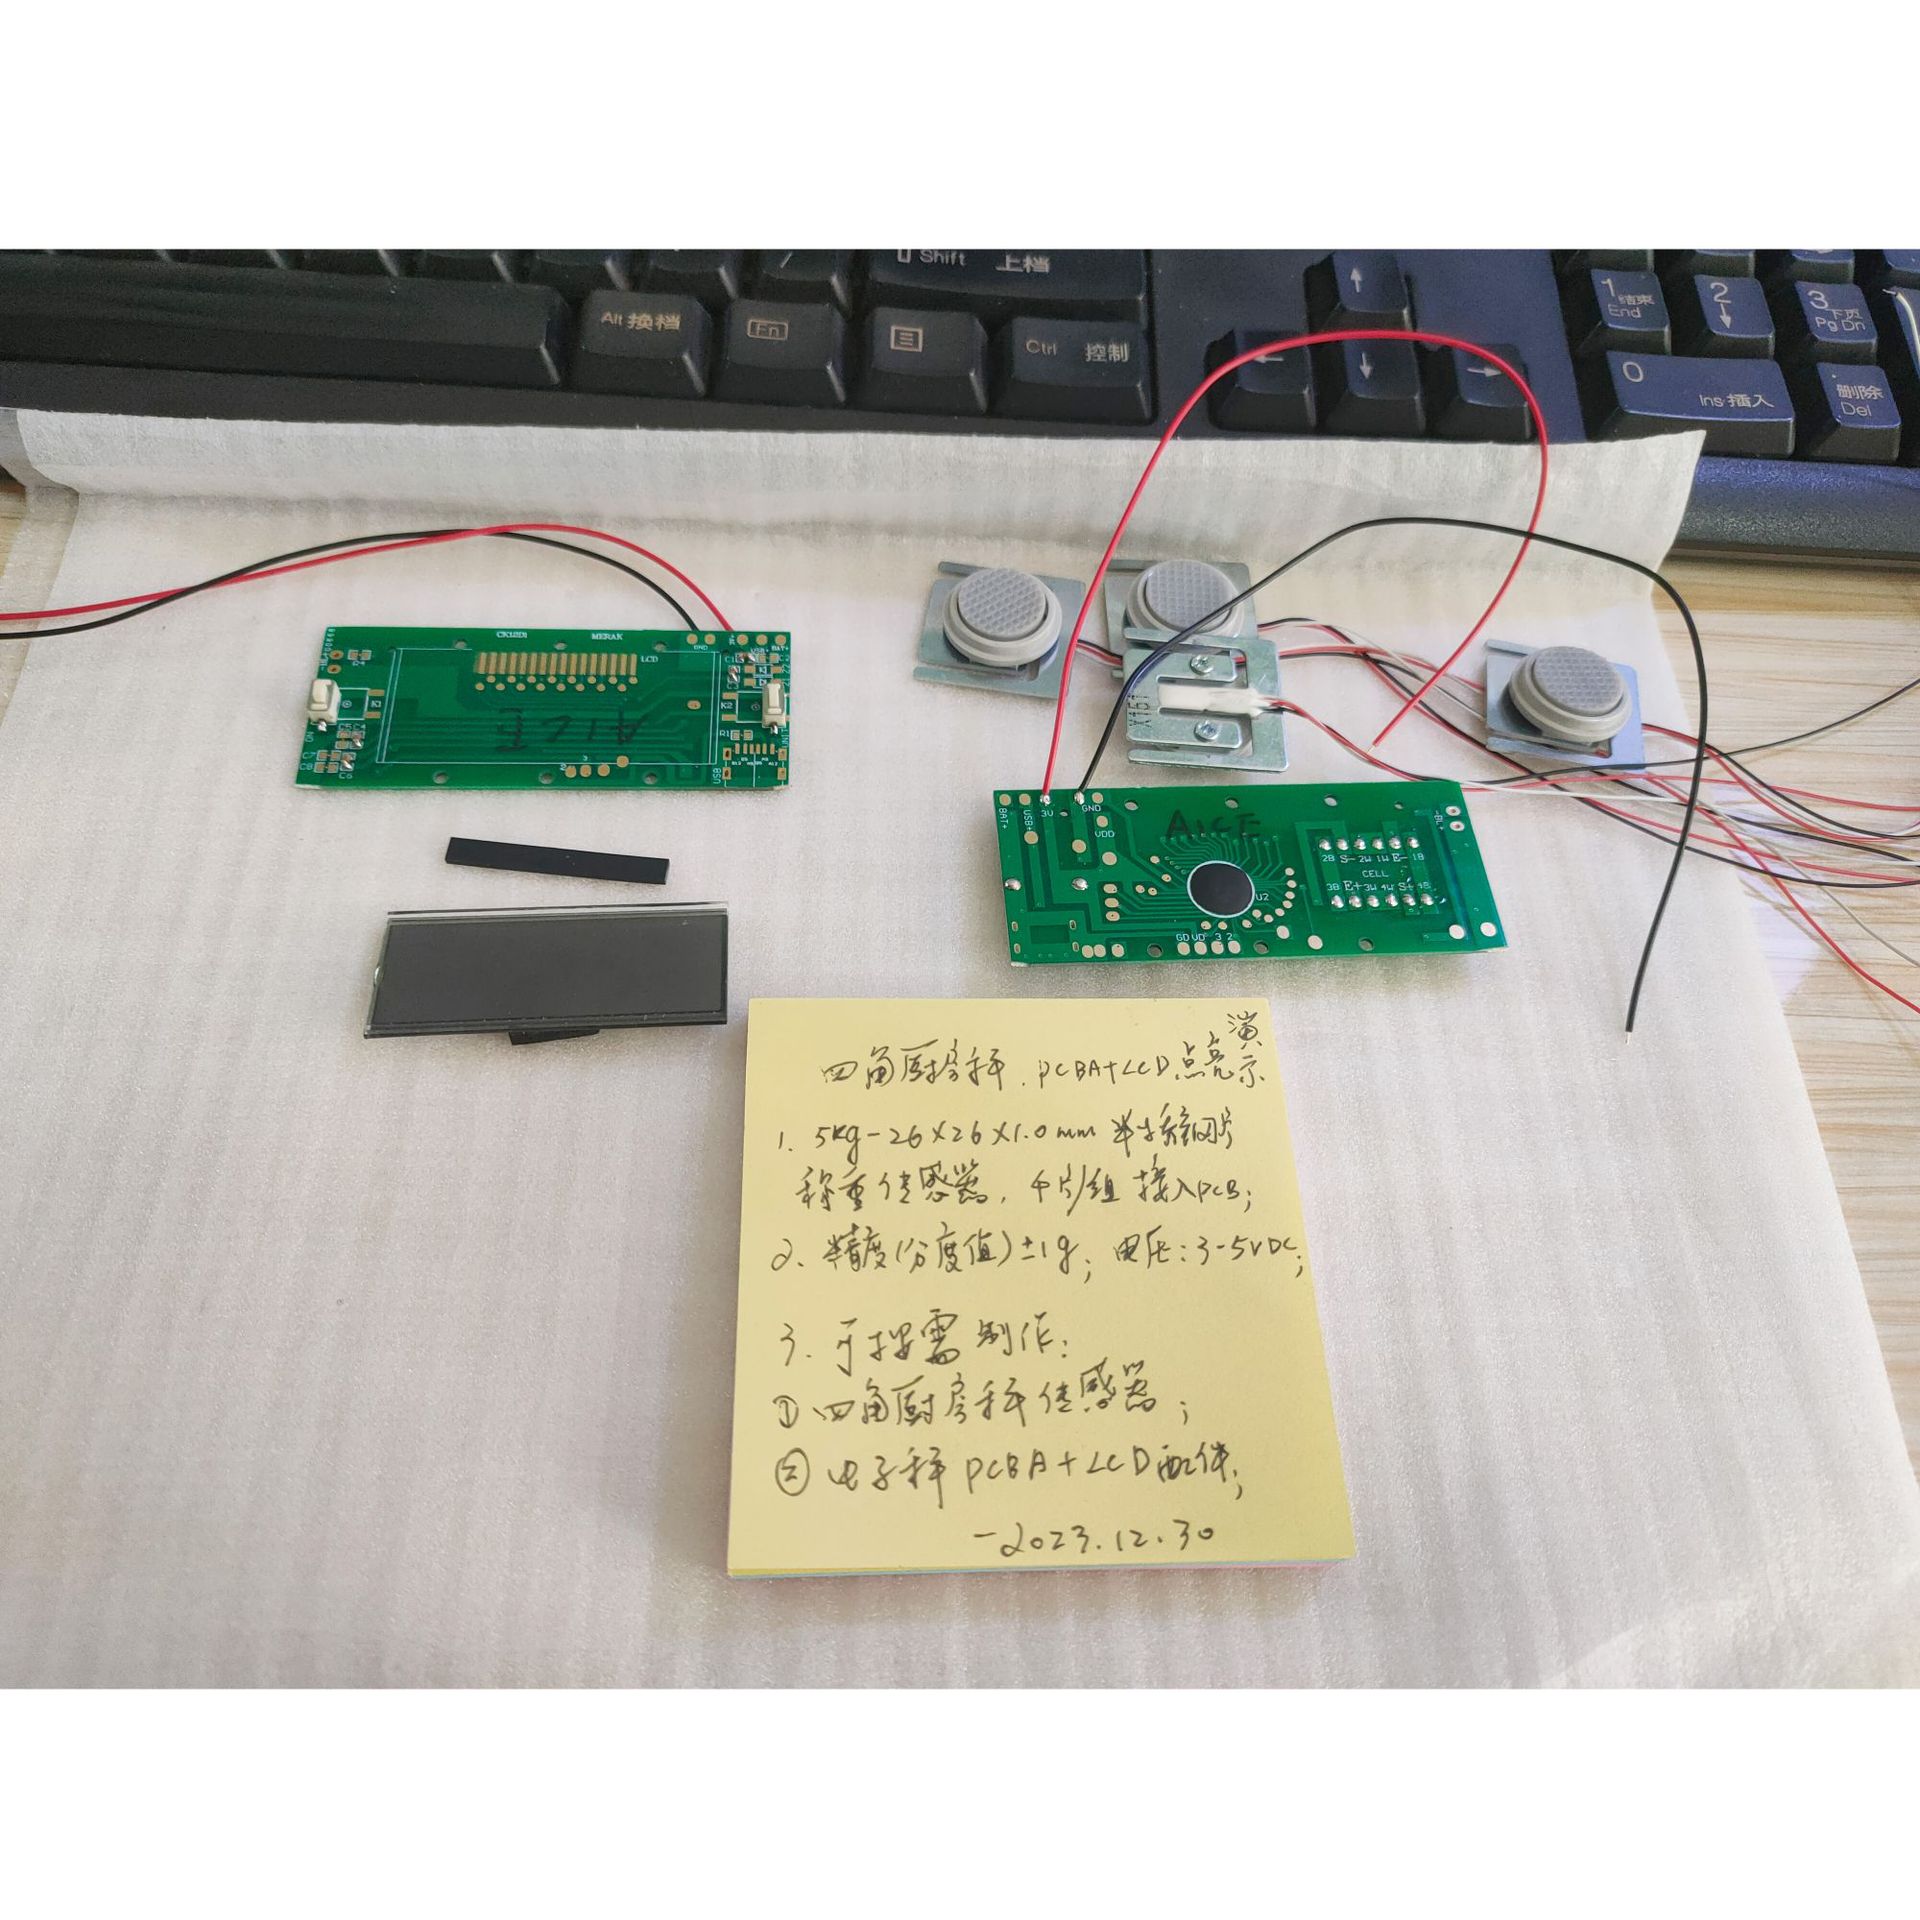 Shift 上档
Alt 换档
Fn
Ctrl 控制
1 结束 End
2
3 下页 Pg Dn
0 Ins 插入
删除 Del
CK12D1 MERAK
LCD
GND
BAT+
K1
K2
R4
R1
C5 C4
C7
C8
C6
USB
AICE
X151
BAT+ USB+ 3V GND
VDD
AICE
BL+
2B S- 2W 1W E- 1B
CELL
3B E+ 3W 4W S+ 4B
U2
GD VD 3 2
四角厨房秤. PCBA+LCD点亮演示
1. 5kg-26X26X1.0mm 半桥
称重传感器, 4片/组 接入PCB;
2. 精度(分度值)±1g; 电压:3-5VDC;
3. 可按需制作:
① 四角厨房秤传感器;
② 电子秤PCBA+LCD配件;
-2023.12.30